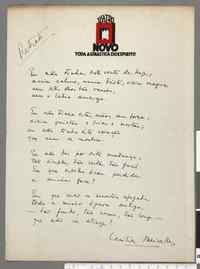 TEATRO
NOVO
TODA A GINÁSTICA DO ESPÍRITO
Retrato
Eu não tinha este rosto de hoje,
assim calmo, assim triste, assim magro,
nem estes olhos tão vazios,
nem o lábio amargo.
Eu não tinha estas mãos sem força,
assim paradas e frias e mortas;
eu não tinha este coração
que nem se mostra.
Eu não dei por esta mudança,
tão simples, tão certa, tão fácil:
Em que espelho ficou perdida
a minha face?
Em que mar
toda a minha figura antiga
— tão funda, tão tão longe —
que não se atinge?
Cecília Meireles